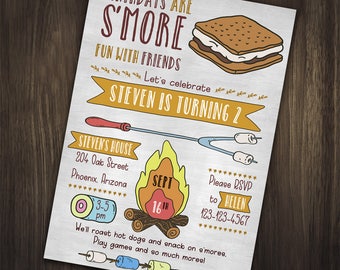 BIRTHDAYS ARE
S'MORE
FUN WITH FRIENDS
Let's celebrate
STEVEN IS TURNING 2
STEVEN'S HOUSE
204 Oak Street
Phoenix, Arizona
SEPT
16TH
Please RSVP
to HELEN
123-123-4567
3-5
pm
We'll roast hot dogs and snack on s'mores.
Play games and so much more!